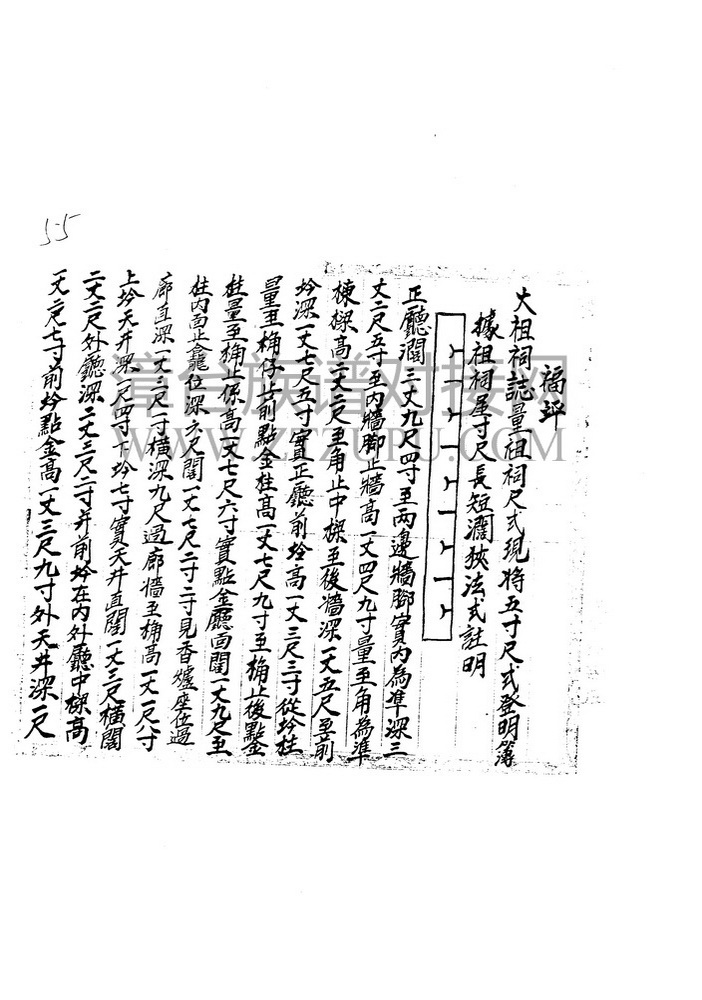 55
福
大祖祠誌量祖祠尺式現將五寸尺式登明簿
據祖祠屋寸尺長短濶狹法式註明
正廳濶三丈九尺四寸至兩邊牆腳實內為準深三
丈二尺五寸至內牆腳止牆高一丈四尺九寸量至角為準
棟樑高一丈二尺至角止中樑至後牆深一丈五尺至前
坽深一丈七尺五寸實正廳前坽高一丈三尺三寸從坽柱
量至桷仔止前點金柱高一丈七尺九寸至桷止後點金
柱量至桷止係高一丈七尺六寸實點金廳面濶一丈九尺至
柱內面止龕位深六尺濶一丈七尺二寸二寸見香爐座位過
廊直深一丈三尺一寸橫深九尺過廊牆至桷高一丈一尺六寸
上坽天井深一尺四寸下坽七寸實天井直濶一丈三尺橫濶
二丈二尺外廳深二丈三尺二寸井前坽在內外廳中樑高
一丈六尺七寸前坽點金高一丈三尺九寸外天井深一尺
壹台族谱对接网
WWW.ZTZUPU.COM